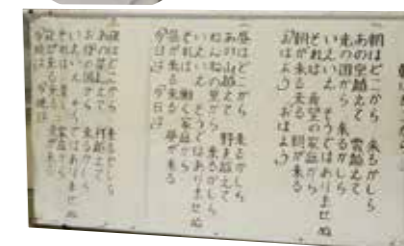 朝はどこから
一
朝はどこから 来るかしら
あの空越えて 雲越えて
光の国から 来るかしら
いえいえ そうではありませぬ
それは 希望の家庭から
朝が来る来る 朝が来る
おはよう おはよう
二
昼はどこから 来るかしら
あの山越えて 野を越えて
ねんねの里から 来るかしら
いえいえ そうではありませぬ
それは 働く家庭から
昼が来る来る 昼が来る
今日は 今日は
三
夜はどこから 来るかしら
あの星越えて 月越えて
お伽の国から 来るかしら
いえいえ そうではありませぬ
それは 楽しい家庭から
夜が来る来る 夜が来る
今晩は 今晩は